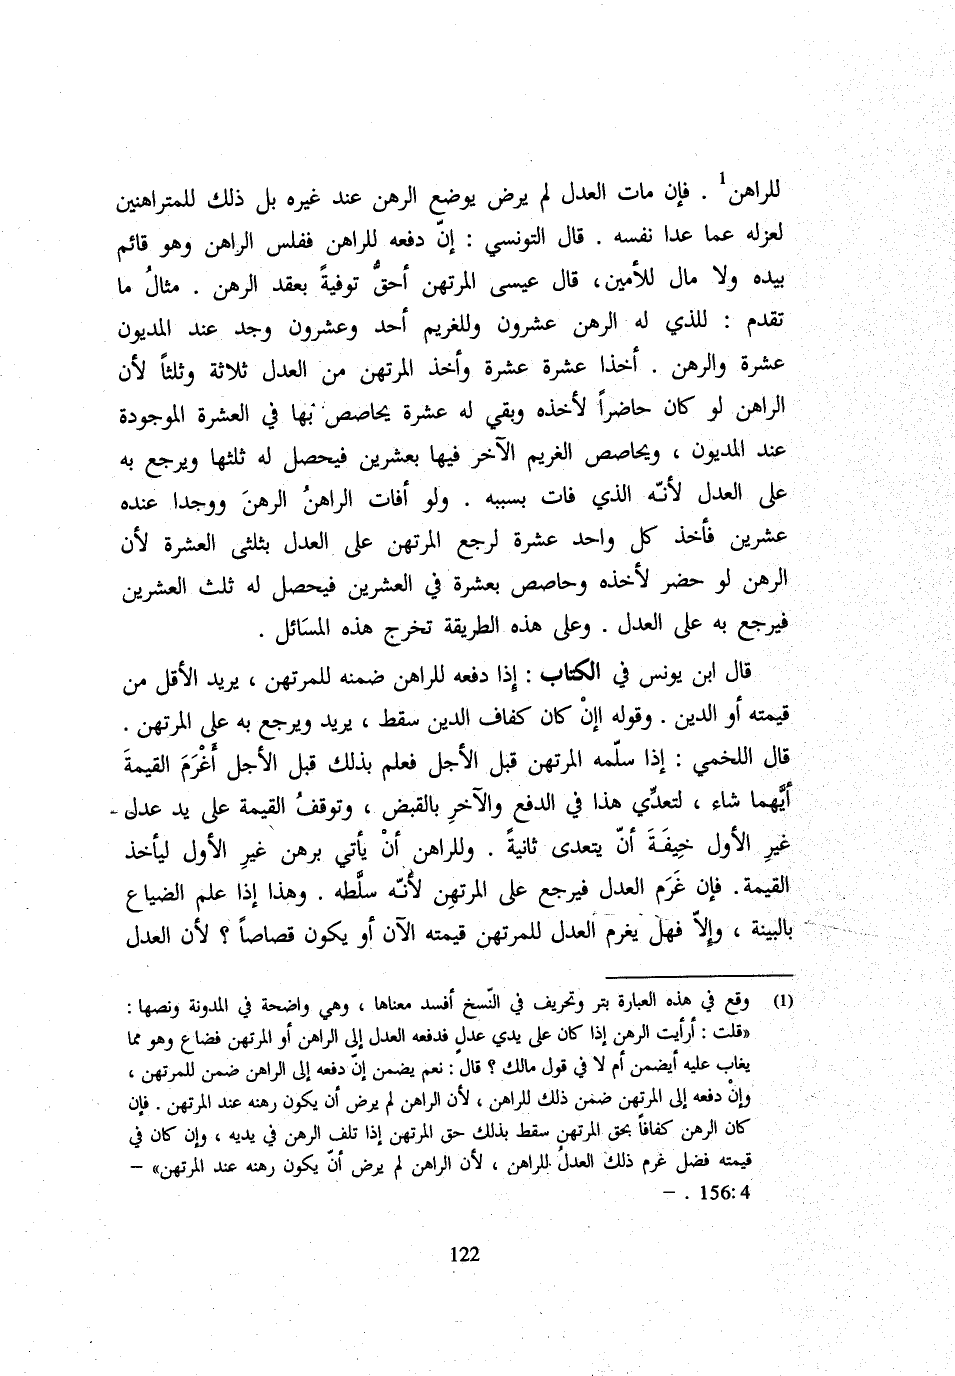 للراهن1 . فإن مات العدل لم يرض يوضع الرهن عند غيره بل ذلك للمتراهنين
لعزله عما عدا نفسه . قال التونسي : إنّ دفعه للراهن ففلس الراهن وهو قائم
بيده ولا مال للأمين، قال عيسى المرتهن أحقُّ توفيةً بعقد الرهن . مثالُ ما
تقدم : للذي له الرهن عشرون وللغريم أحد وعشرون وجد عند المديون
عشرة والرهن . أخذا عشرة عشرة وأخذ المرتهن من العدل ثلاثة وثلثاً لأن
الراهن لو كان حاضراً لأخذه وبقي له عشرة يحاصص بها في العشرة الموجودة
عند المديون ، ويحاصص الغريم الآخر فيها بعشرين فيحصل له ثلثها ويرجع به
على العدل لأنّه الذي فات بسببه . ولو أفات الراهنُ الرهنَ ووجدا عنده
عشرين فأخذ كل واحد عشرة لرجع المرتهن على العدل بثلثى العشرة لأن
الرهن لو حضر لأخذه وحاصص بعشرة في العشرين فيحصل له ثلث العشرين
فيرجع به على العدل . وعلى هذه الطريقة تخرج هذه المسَائل .
قال ابن يونس في الكتاب : إذا دفعه للراهن ضمنه للمرتهن ، يريد الأقل من
قيمته أو الدين . وقوله اإنْ كان كفاف الدين سقط ، يريد ويرجع به على المرتهن .
قال اللخمي : إذا سلّمه المرتهن قبل الأجل فعلم بذلك قبل الأجل أَغْرَمَ القيمةَ
أيَّهما شاء ، لتعدِّي هذا في الدفع والآخرِ بالقبض ، وتوقفُ القيمة على يد عدل
غيرِ الأول خِيفَةَ أنّ يتعدى ثانيةً . وللراهن أنْ يأتي برهن غيرِ الأول ليأخذ
القيمة. فإن غَرَم العدل فيرجع على المرتهِن لأنّه سلَّطه . وهذا إذا علم الضياع
بالبينة ، وإلاّ فهل يغرم العدل للمرتهن قيمته الآن أو يكون قصاصاً ؟ لأن العدل
(1) وقع في هذه العبارة بتر وتحريف في النّسخ أفسد معناها ، وهي واضحة في المدونة ونصها :
«قلت : أرأيت الرهن إذا كان على يدي عدلٍ فدفعه العدل إلى الراهن أو المرتهن فضاع وهو مما
يغاب عليه أيضمن أم لا في قول مالك ؟ قال : نعم يضمن إنّ دفعه إلى الراهن ضمن للمرتهن ،
وإنْ دفعه إلى المرتهن ضمن ذلك للراهن ، لأن الراهن لم يرض أن يكون رهنه عند المرتهن . فإن
كان الرهن كفافاً بحق المرتهنِ سقط بذلك حق المرتهن إذا تلف الرهن في يديه ، وإن كان في
قيمته فضل غرم ذلك العدلُ للراهن ، لأن الراهن لم يرض أنّ يكون رهنه عند المرتهن» –
4 :156 . –
122